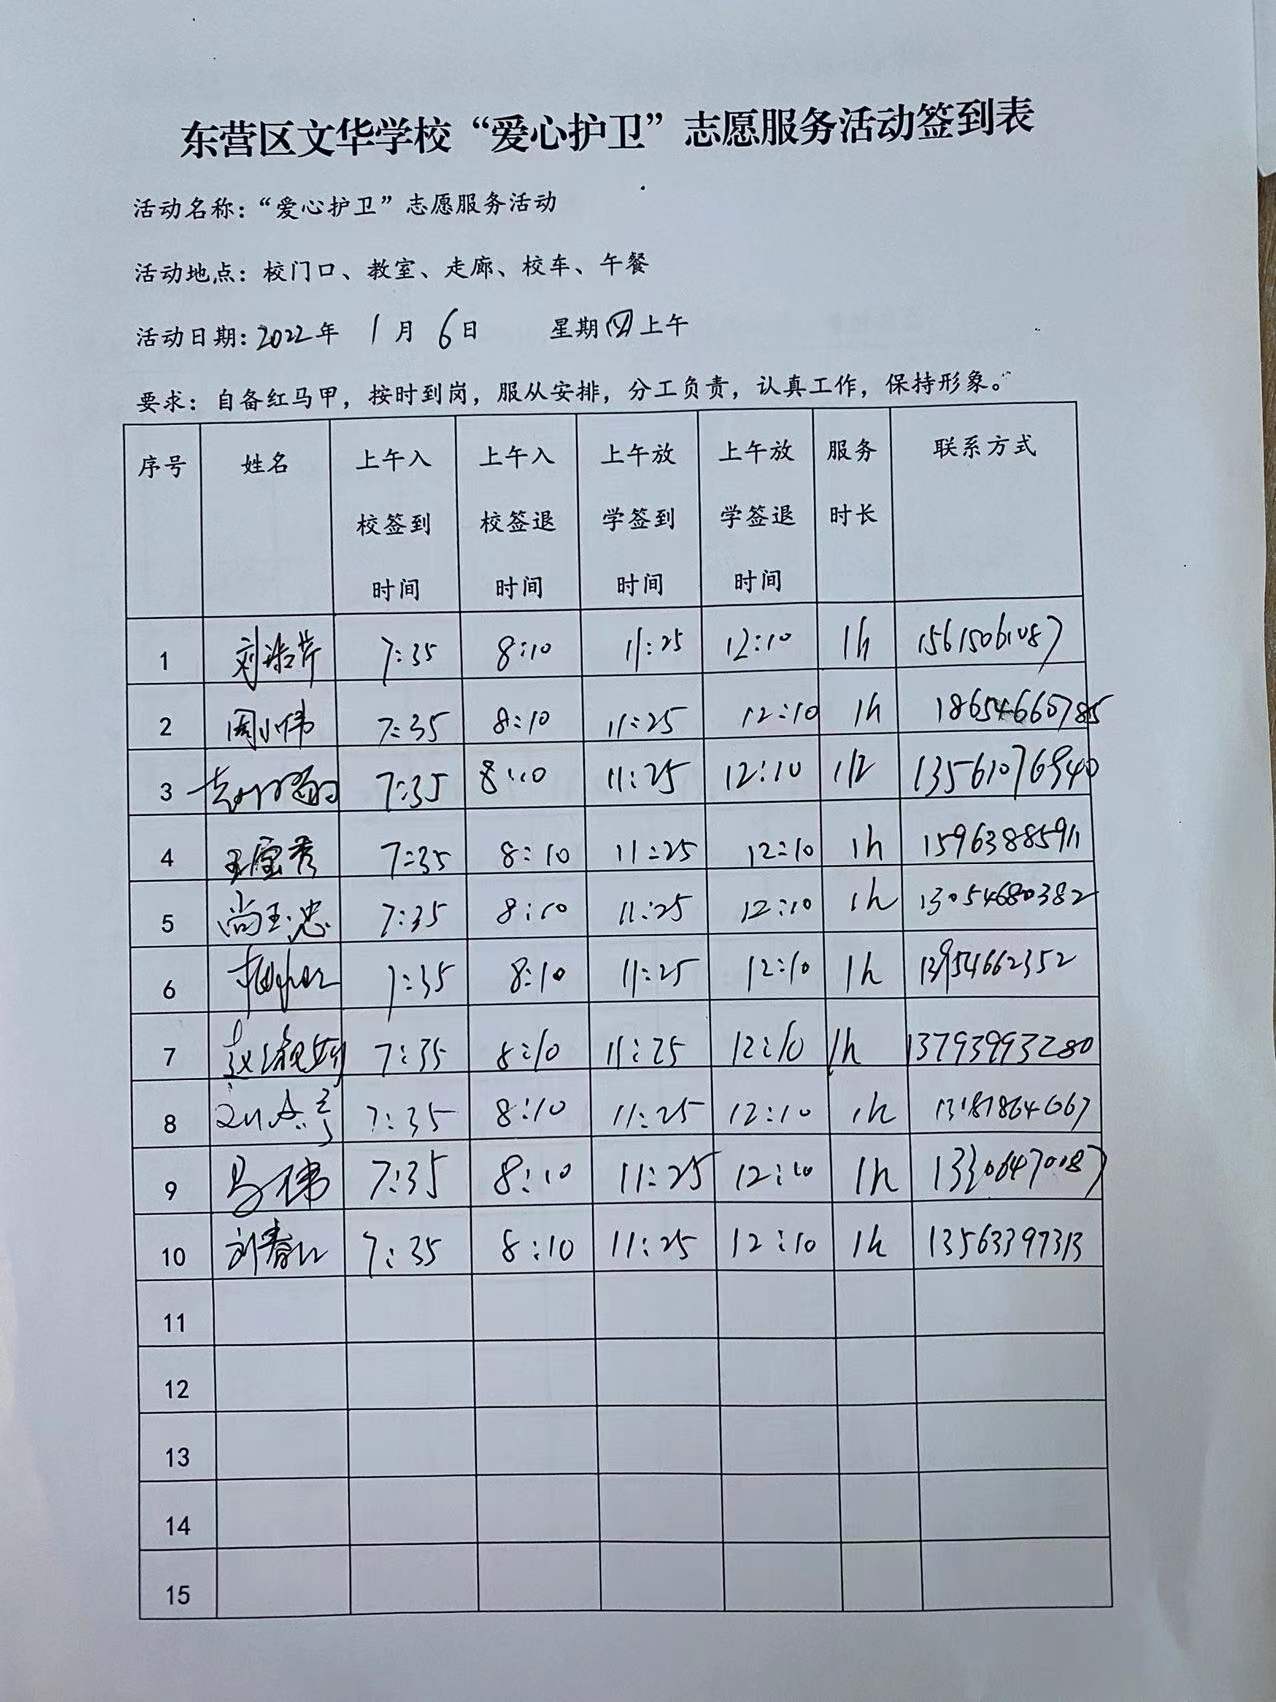 东营区文华学校“爱心护卫”志愿服务活动签到表
活动名称：“爱心护卫”志愿服务活动
活动地点：校门口、教室、走廊、校车、午餐
活动日期：2022年 1月 6日 星期四上午
要求：自备红马甲，按时到岗，服从安排，分工负责，认真工作，保持形象。
序号 姓名 上午入校签到时间 上午入校签退时间 上午放学签到时间 上午放学签退时间 服务时长 联系方式
1 7:35 8:10 11:25 12:10 1h 15615061087
2 周小伟 7:35 8:10 11:25 12:10 1h 18654660785
3 7:35 8:10 11:25 12:10 1h 13561076940
4 7:35 8:10 11:25 12:10 1h 15963885911
5 尚玉忠 7:35 8:10 11:25 12:10 1h 13054680382
6 7:35 8:10 11:25 12:10 1h 13954662352
7 7:35 8:10 11:25 12:10 1h 13793993280
8 7:35 8:10 11:25 12:10 1h
9 马伟 7:35 8:10 11:25 12:10 1h
10 刘春江 7:35 8:10 11:25 12:10 1h 13563397313
11
12
13
14
15